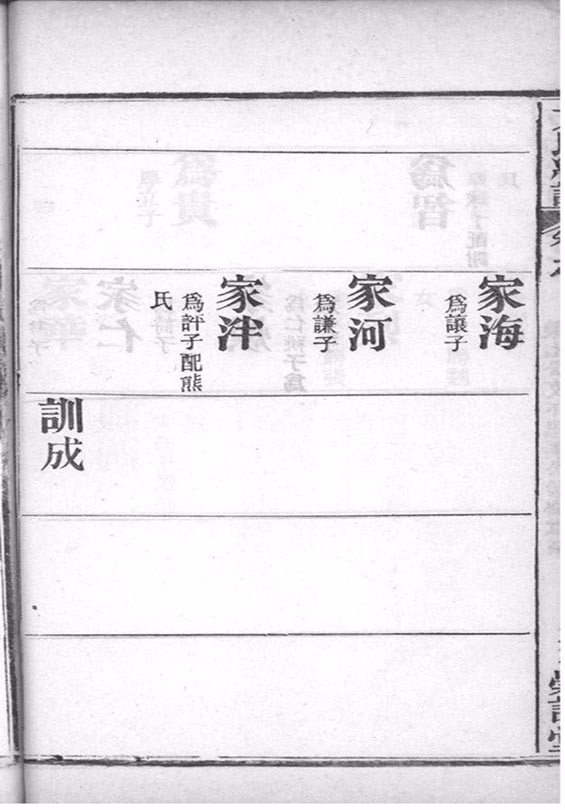 家海
爲讓子
家河
爲謙子
家泮
爲評子配熊
氏
訓成